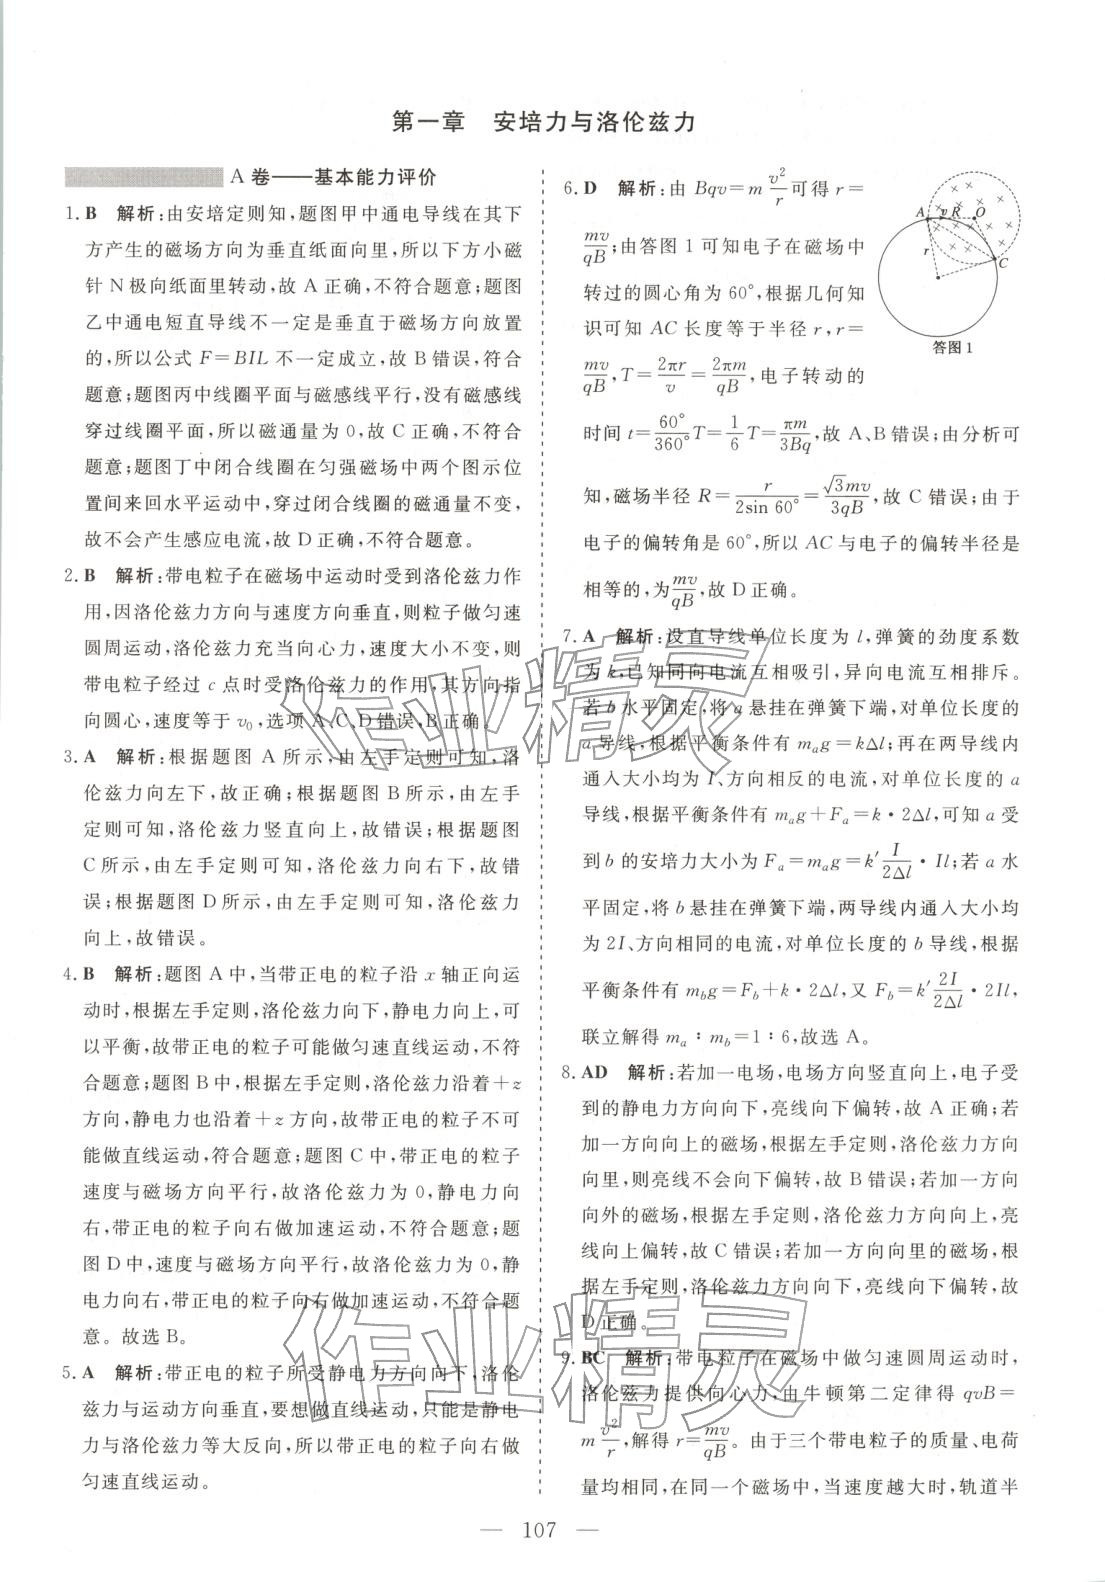 第一章 安培力与洛伦兹力
A 卷——基本能力评价
1. B 解析:由安培定则知,题图甲中通电导线在其下
方产生的磁场方向为垂直纸面向里,所以下方小磁
针 N 极向纸面里转动,故 A 正确,不符合题意;题图
乙中通电短直导线不一定是垂直于磁场方向放置
的,所以公式 F=BIL 不一定成立,故 B 错误,符合
题意;题图丙中线圈平面与磁感线平行,没有磁感线
穿过线圈平面,所以磁通量为 0,故 C 正确,不符合
题意;题图丁中闭合线圈在匀强磁场中两个图示位
置间来回水平运动中,穿过闭合线圈的磁通量不变,
故不会产生感应电流,故 D 正确,不符合题意。
2. B 解析:带电粒子在磁场中运动时受到洛伦兹力作
用,因洛伦兹力方向与速度方向垂直,则粒子做匀速
圆周运动,洛伦兹力充当向心力,速度大小不变,则
带电粒子经过 c 点时受洛伦兹力的作用,其方向指
向圆心,速度等于 v₀,选项 A、C、D 错误,B 正确。
3. A 解析:根据题图 A 所示,由左手定则可知,洛
伦兹力向左下,故正确;根据题图 B 所示,由左手
定则可知,洛伦兹力竖直向上,故错误;根据题图
C 所示,由左手定则可知,洛伦兹力向右下,故错
误;根据题图 D 所示,由左手定则可知,洛伦兹力
向上,故错误。
4. B 解析:题图 A 中,当带正电的粒子沿 x 轴正向运
动时,根据左手定则,洛伦兹力向下,静电力向上,可
以平衡,故带正电的粒子可能做匀速直线运动,不符
合题意;题图 B 中,根据左手定则,洛伦兹力沿着+z
方向,静电力也沿着+z 方向,故带正电的粒子不可
能做直线运动,符合题意;题图 C 中,带正电的粒子
速度与磁场方向平行,故洛伦兹力为 0,静电力向
右,带正电的粒子向右做加速运动,不符合题意;题
图 D 中,速度与磁场方向平行,故洛伦兹力为 0,静
电力向右,带正电的粒子向右做加速运动,不符合题
意。故选 B。
5. A 解析:带正电的粒子所受静电力方向向下,洛伦
兹力与运动方向垂直,要想做直线运动,只能是静电
力与洛伦兹力等大反向,所以带正电的粒子向右做
匀速直线运动。
6. D 解析:由 Bqv=m v²/r 可得 r=
mv/qB;由答图 1 可知电子在磁场中
转过的圆心角为 60°,根据几何知
识可知 AC 长度等于半径 r,r=
mv/qB,T=2πr/v=2πm/qB,电子转动的
时间 t=60°/360°T=1/6T=πm/3Bq,故 A、B 错误;由分析可
知,磁场半径 R=r/2sin 60°=√3mv/3qB,故 C 错误;由于
电子的偏转角是 60°,所以 AC 与电子的偏转半径是
相等的,为mv/qB,故 D 正确。
A v R O
r
C
答图 1
7. A 解析:设直导线单位长度为 l,弹簧的劲度系数
为 k,已知同向电流互相吸引,异向电流互相排斥。
若 b 水平固定,将 a 悬挂在弹簧下端,对单位长度的
a 导线,根据平衡条件有 mₐg=kΔl;再在两导线内
通入大小均为 I、方向相反的电流,对单位长度的 a
导线,根据平衡条件有 mₐg+Fₐ=k·2Δl,可知 a 受
到 b 的安培力大小为 Fₐ=mₐg=k′I/2Δl·Il;若 a 水
平固定,将 b 悬挂在弹簧下端,两导线内通入大小均
为 2I、方向相同的电流,对单位长度的 b 导线,根据
平衡条件有 m_b g=F_b+k·2Δl,又 F_b=k′2I/2Δl·2Il,
联立解得 mₐ∶m_b=1∶6,故选 A。
8. AD 解析:若加一电场,电场方向竖直向上,电子受
到的静电力方向向下,亮线向下偏转,故 A 正确;若
加一方向向上的磁场,根据左手定则,洛伦兹力方向
向里,则亮线不会向下偏转,故 B 错误;若加一方向
向外的磁场,根据左手定则,洛伦兹力方向向上,亮
线向上偏转,故 C 错误;若加一方向向里的磁场,根
据左手定则,洛伦兹力方向向下,亮线向下偏转,故
D 正确。
9. BC 解析:带电粒子在磁场中做匀速圆周运动时,
洛伦兹力提供向心力,由牛顿第二定律得 qvB=
m v²/r,解得 r=mv/qB。由于三个带电粒子的质量、电荷
量均相同,在同一个磁场中,当速度越大时,轨道半
— 107 —
作业精灵
作业精灵